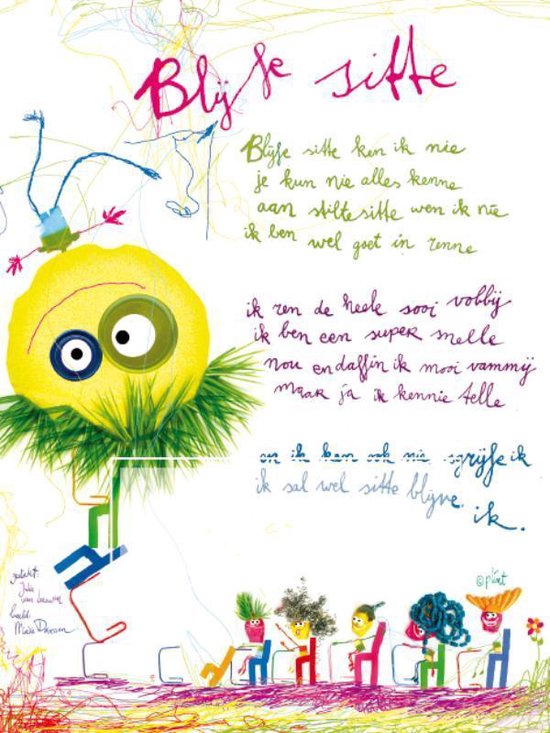 Blijfe sitte
Blijfe sitte ken ik nie
je kun nie alles kenne
aan stiltesitte wen ik nie
ik ben wel goet in renne
ik ren de heele sooi vobbij
ik ben een super snelle
nou en daffin ik mooi vammij
maar ja ik kennie telle
en ik ken ook nie sgrijfe ik
ik sal wel sitte blijve
ik.
©plint
gedicht:
Joke
van Leeuwen
beeld: